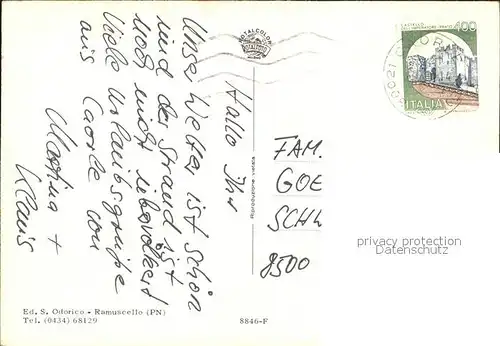 Hallo Ihr
Unse Wetter ist schön
und der Strand ist
noch nicht übervölkert
Viele Urlaubsgrüße
aus Caorle von
Martina +
Klaus
TOTALCOLOR
Riproduzione vietata
FAM.
GOE
SCHW
8500
400
ITALIA
privacy protection
Datenschutz
Ed. S. Odorico - Ramuscello (PN)
Tel. (0434) 68129
8846-F